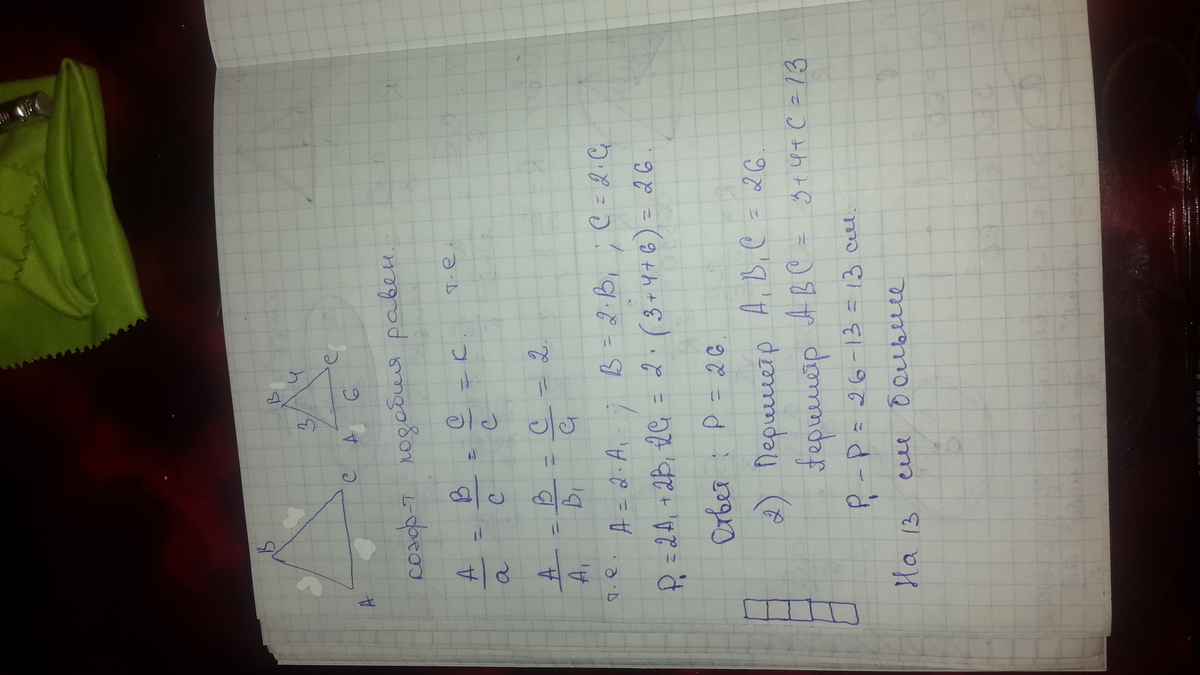 B
A C
B1
3 4
A1 6 C1
коэф-т подобия равен.
A/a = B/c = C/c = k. т.е.
A/A1 = B/B1 = C/C1 = 2.
т.е. A = 2·A1 ; B = 2·B1 ; C = 2·C1
P1 = 2A1 + 2B1 + 2C1 = 2·(3+4+6) = 26.
Ответ: P = 26.
2) Периметр A1B1C = 26.
Периметр ABC = 3+4+C = 13
P1 - P = 26 - 13 = 13 см.
На 13 см больше